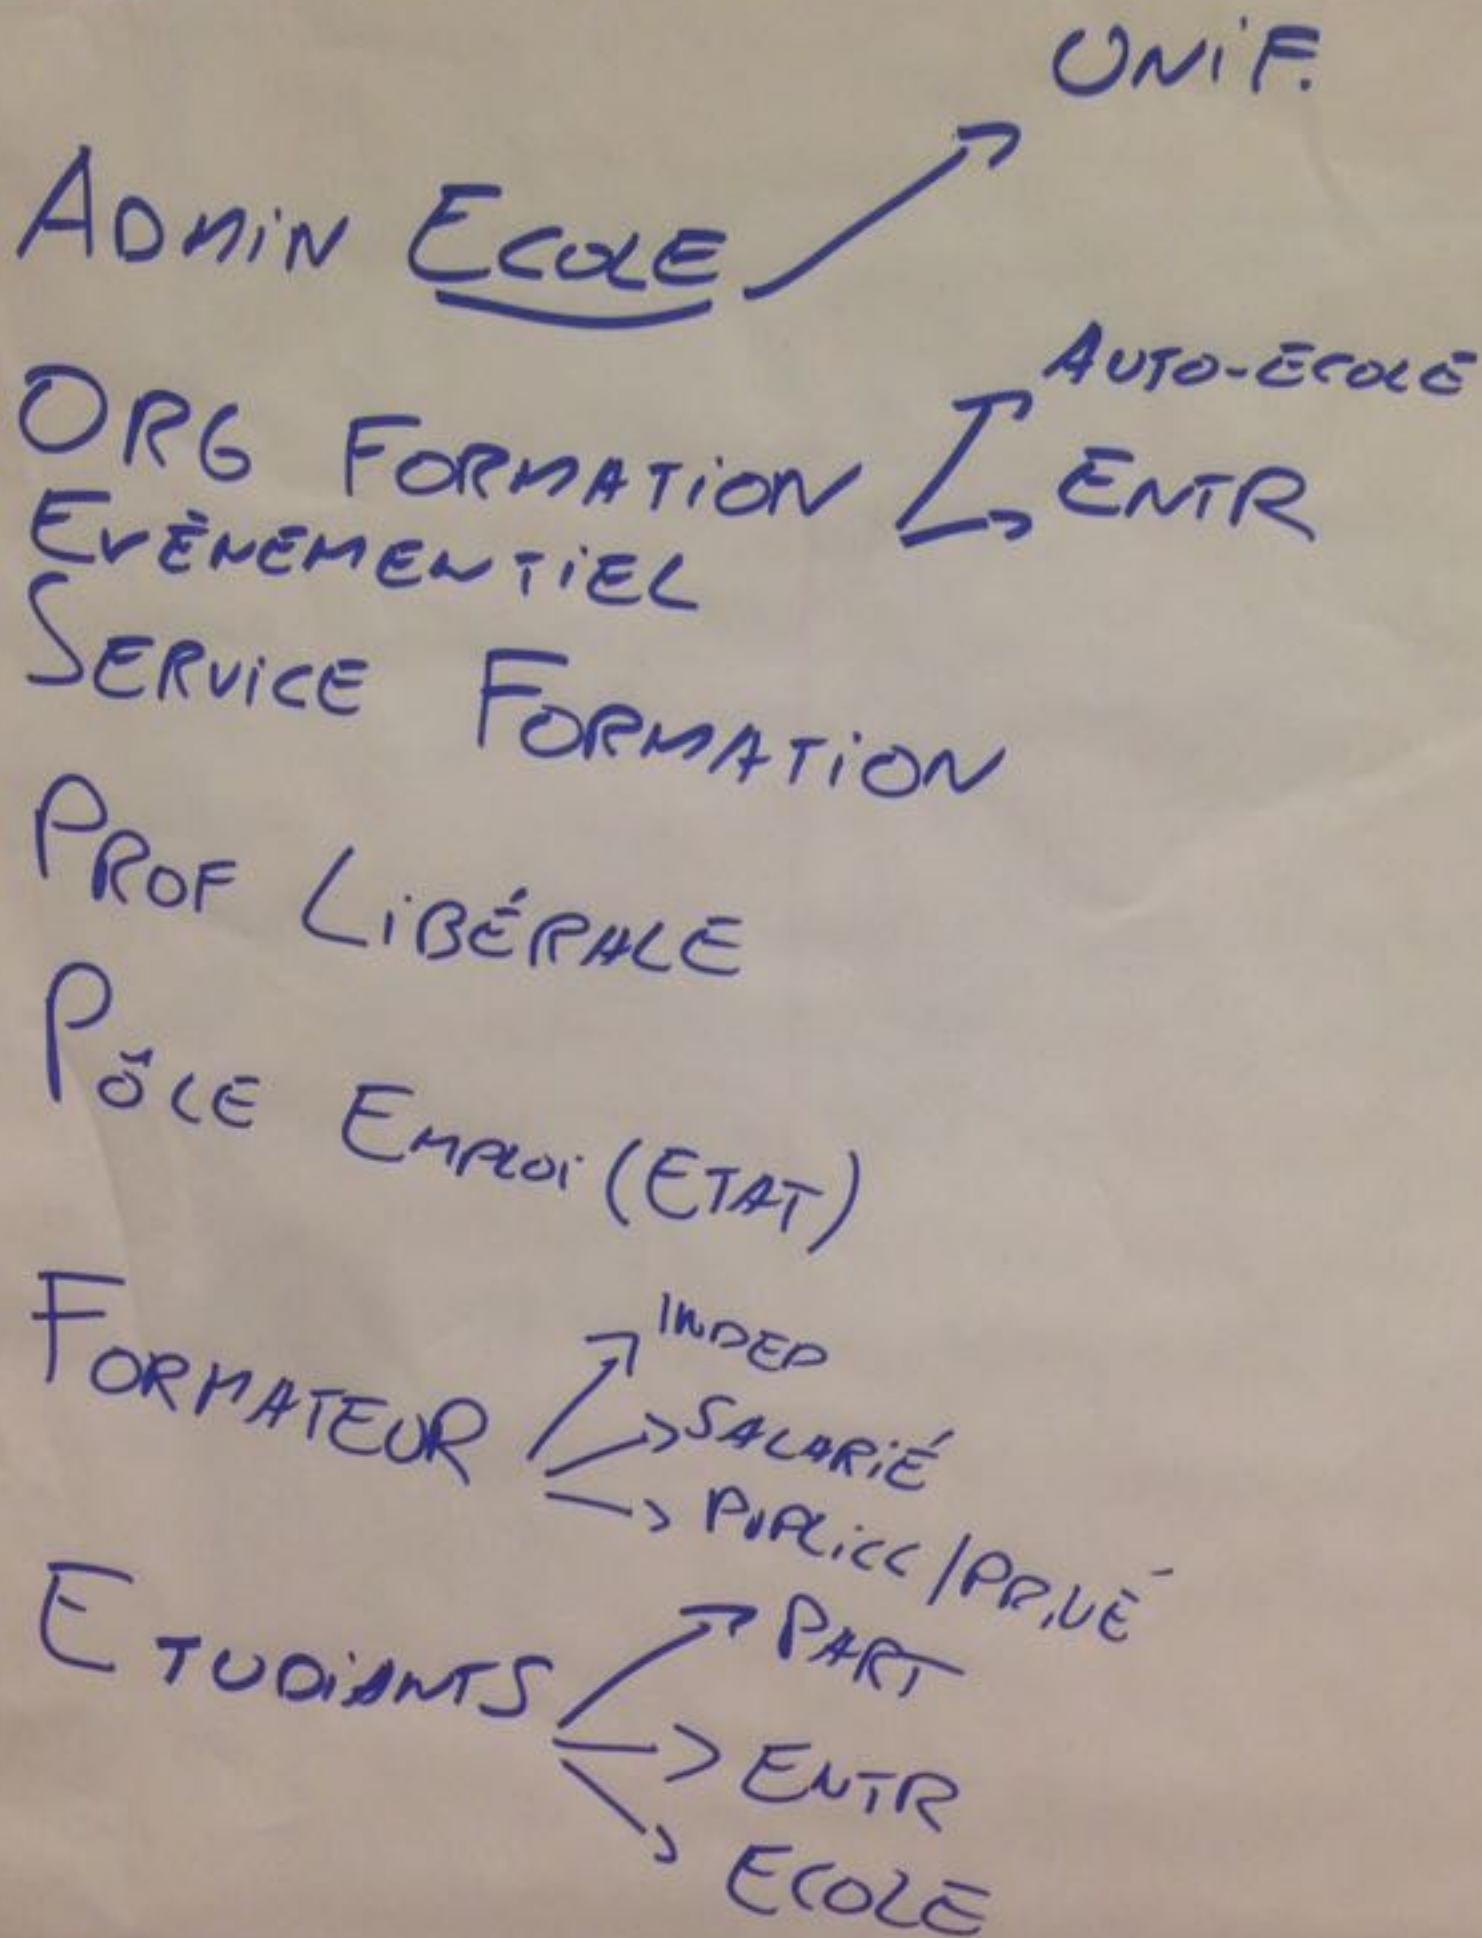 UNIF.
ADMIN ECOLE
AUTO-ECOLE
ORG FORMATION
ENTR
EVÈNEMENTIEL
SERVICE FORMATION
PROF LIBÉRALE
PÔLE EMPLOI (ETAT)
FORMATEUR
INDEP
SALARIÉ
PUBLICC/PRIVÉ
ETUDIANTS
PART
ENTR
ECOLE